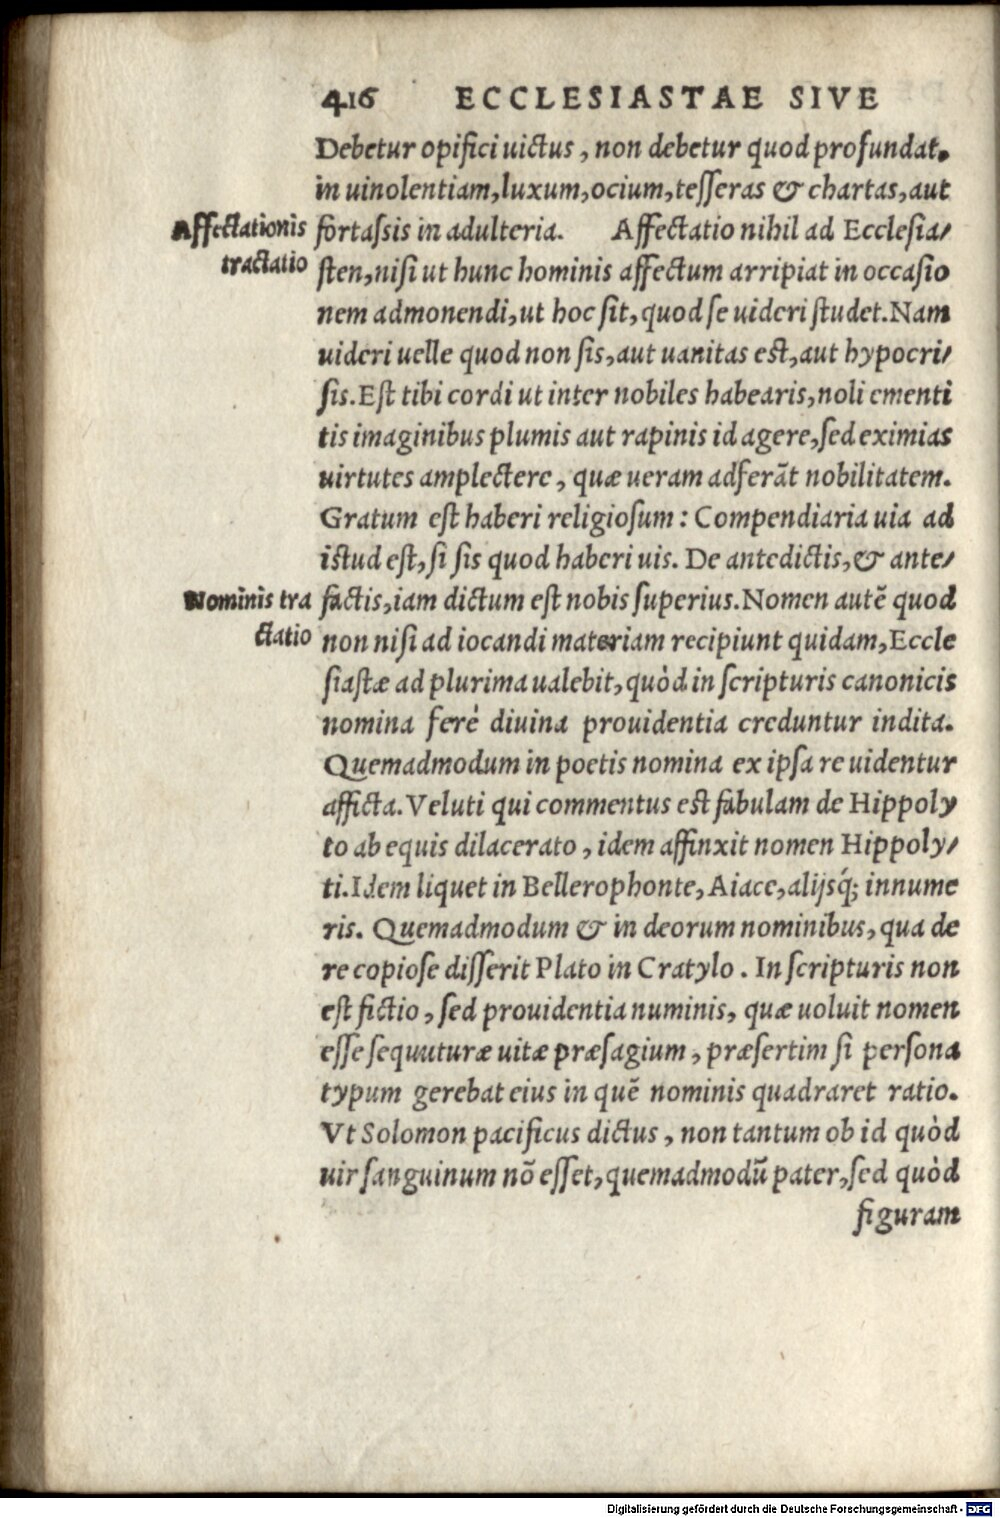 416 ECCLESIASTAE SIVE
Debetur opifici uictus, non debetur quod profundat.
in uinolentiam, luxum, ocium, tesseras & chartas, aut
Affectationis
tractatio
fortassis in adulteria. Affectatio nihil ad Ecclesia/
sten, nisi ut hunc hominis affectum arripiat in occasio
nem admonendi, ut hoc sit, quod se uideri studet. Nam
uideri uelle quod non sis, aut uanitas est, aut hypocri/
sis. Est tibi cordi ut inter nobiles habearis, noli ementi
tis imaginibus plumis aut rapinis id agere, sed eximias
uirtutes amplectere, quæ ueram adferãt nobilitatem.
Gratum est haberi religiosum: Compendiaria uia ad
istud est, si sis quod haberi uis. De antedictis, & ante/
Nominis tra
ctatio
factis, iam dictum est nobis superius. Nomen autẽ quod
non nisi ad iocandi materiam recipiunt quidam, Eccle
siastæ ad plurima ualebit, quòd in scripturis canonicis
nomina ferè diuina prouidentia creduntur indita.
Quemadmodum in poetis nomina ex ipsa re uidentur
afficta. Veluti qui commentus est fabulam de Hippoly
to ab equis dilacerato, idem affinxit nomen Hippoly/
ti. Idem liquet in Bellerophonte, Aiace, alijsq́; innume
ris. Quemadmodum & in deorum nominibus, qua de
re copiose disserit Plato in Cratylo. In scripturis non
est fictio, sed prouidentia numinis, quæ uoluit nomen
esse sequuturæ uitæ præsagium, præsertim si persona
typum gerebat eius in quẽ nominis quadraret ratio.
Vt Solomon pacificus dictus, non tantum ob id quòd
uir sanguinum nõ esset, quemadmodũ pater, sed quòd
figuram
Digitalisierung gefördert durch die Deutsche Forschungsgemeinschaft - DFG